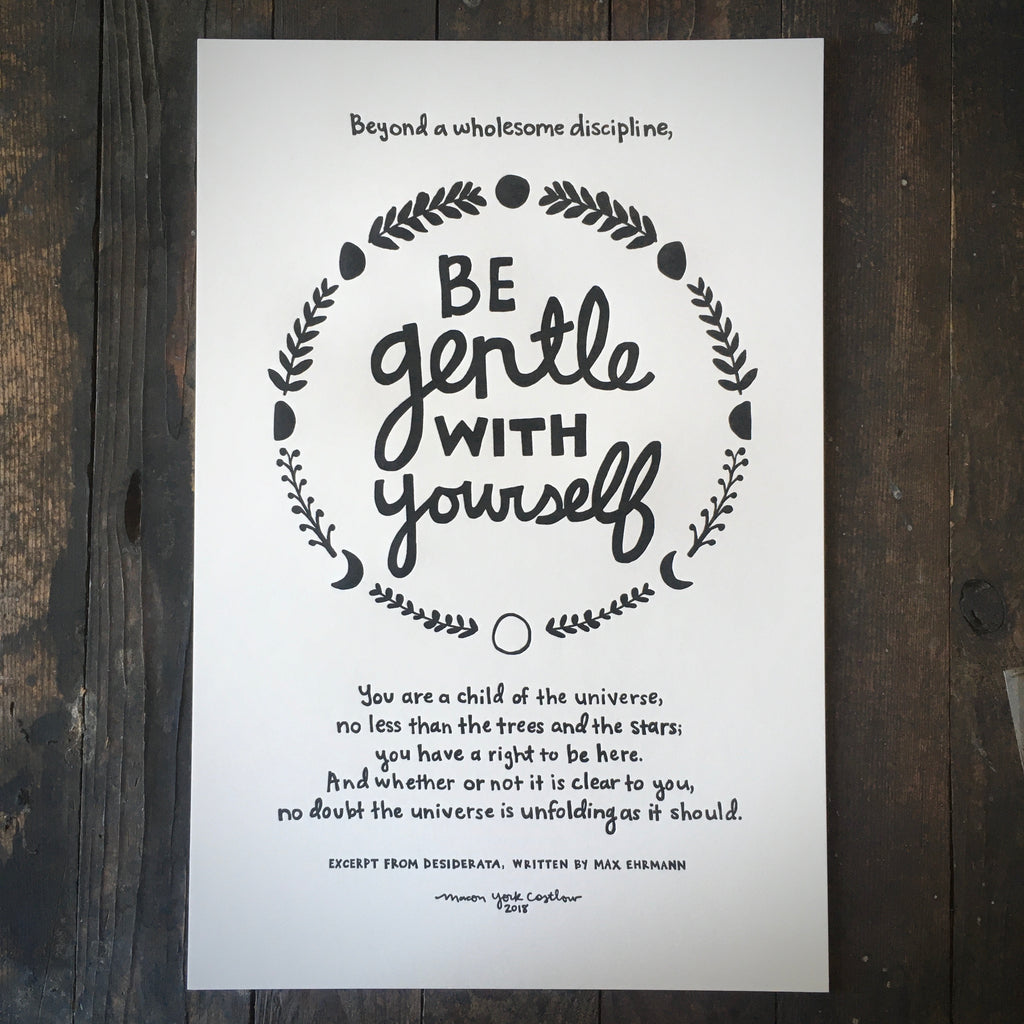 Beyond a wholesome discipline,
BE
gentle
WITH
yourself
You are a child of the universe,
no less than the trees and the stars;
you have a right to be here.
And whether or not it is clear to you,
no doubt the universe is unfolding as it should.
EXCERPT FROM DESIDERATA, WRITTEN BY MAX EHRMANN
Macon York Costlow
2018